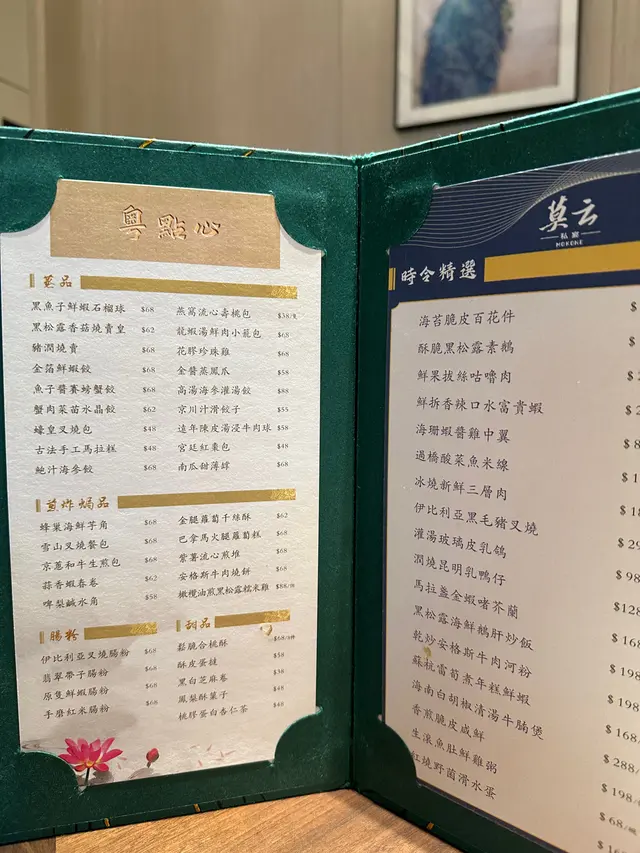 粵點心
蒸品
黑魚子鮮蝦石榴球 $68
黑松露香菇燒賣皇 $62
豬潤燒賣 $68
金箔鮮蝦餃 $68
魚子醬賽螃蟹餃 $68
蟹肉菜苗水晶餃 $62
蠔皇叉燒包 $48
古法手工馬拉糕 $48
鮑汁海參餃 $68
燕窩流心壽桃包 $38/隻
龍蝦湯鮮肉小籠包 $68
花膠珍珠雞 $68
金醬蒸鳳爪 $58
高湯海參灌湯餃 $88
京川汁滑餃子 $55
遠年陳皮湯浸牛肉球 $58
宮廷紅棗包 $48
南瓜甜薄罉 $68
煎炸焗品
蜂巢海鮮芋角 $68
雪山叉燒餐包 $68
京蔥和牛生煎包 $68
蒜香蝦春卷 $62
啤梨鹹水角 $58
金腿蘿蔔千絲酥 $62
巴拿馬火腿蘿蔔糕 $68
紫薯流心煎堆 $68
安格斯牛肉燒餅 $68
橄欖油煎黑松露糯米雞 $88/件
腸粉
伊比利亞叉燒腸粉 $68
翡翠帶子腸粉 $68
原隻鮮蝦腸粉 $68
手磨紅米腸粉 $68
甜品
鬆脆合桃酥 $68/6件
酥皮蛋撻 $58
黑白芝麻卷 $38
鳳梨酥葉子 $48
桃膠蛋白杏仁茶 $48
莫云
私宴
MOKOME
時令精選
海苔脆皮百花件 $
酥脆黑松露素鵝 $
鮮果拔絲咕嚕肉 $
鮮拆香辣口水富貴蝦 $2
海珊蝦醬雞中翼 $
過橋酸菜魚米線 $8
冰燒新鮮三層肉 $1
伊比利亞黑毛豬叉燒 $18
灌湯玻璃皮乳鴿 $29
潤燒昆明乳鴨仔 $98
馬拉盞金蝦啫芥蘭 $128
黑松露海鮮鵝肝炒飯 $168
乾炒安格斯牛肉河粉 $198
蘇杭雷筍煮年糕鮮蝦 $198
海南白胡椒清湯牛腩煲 $168/
香煎脆皮咸鮮 $288/
生滾魚肚鮮雞粥 $198/
紅燒野菌滑水蛋 $68/碗